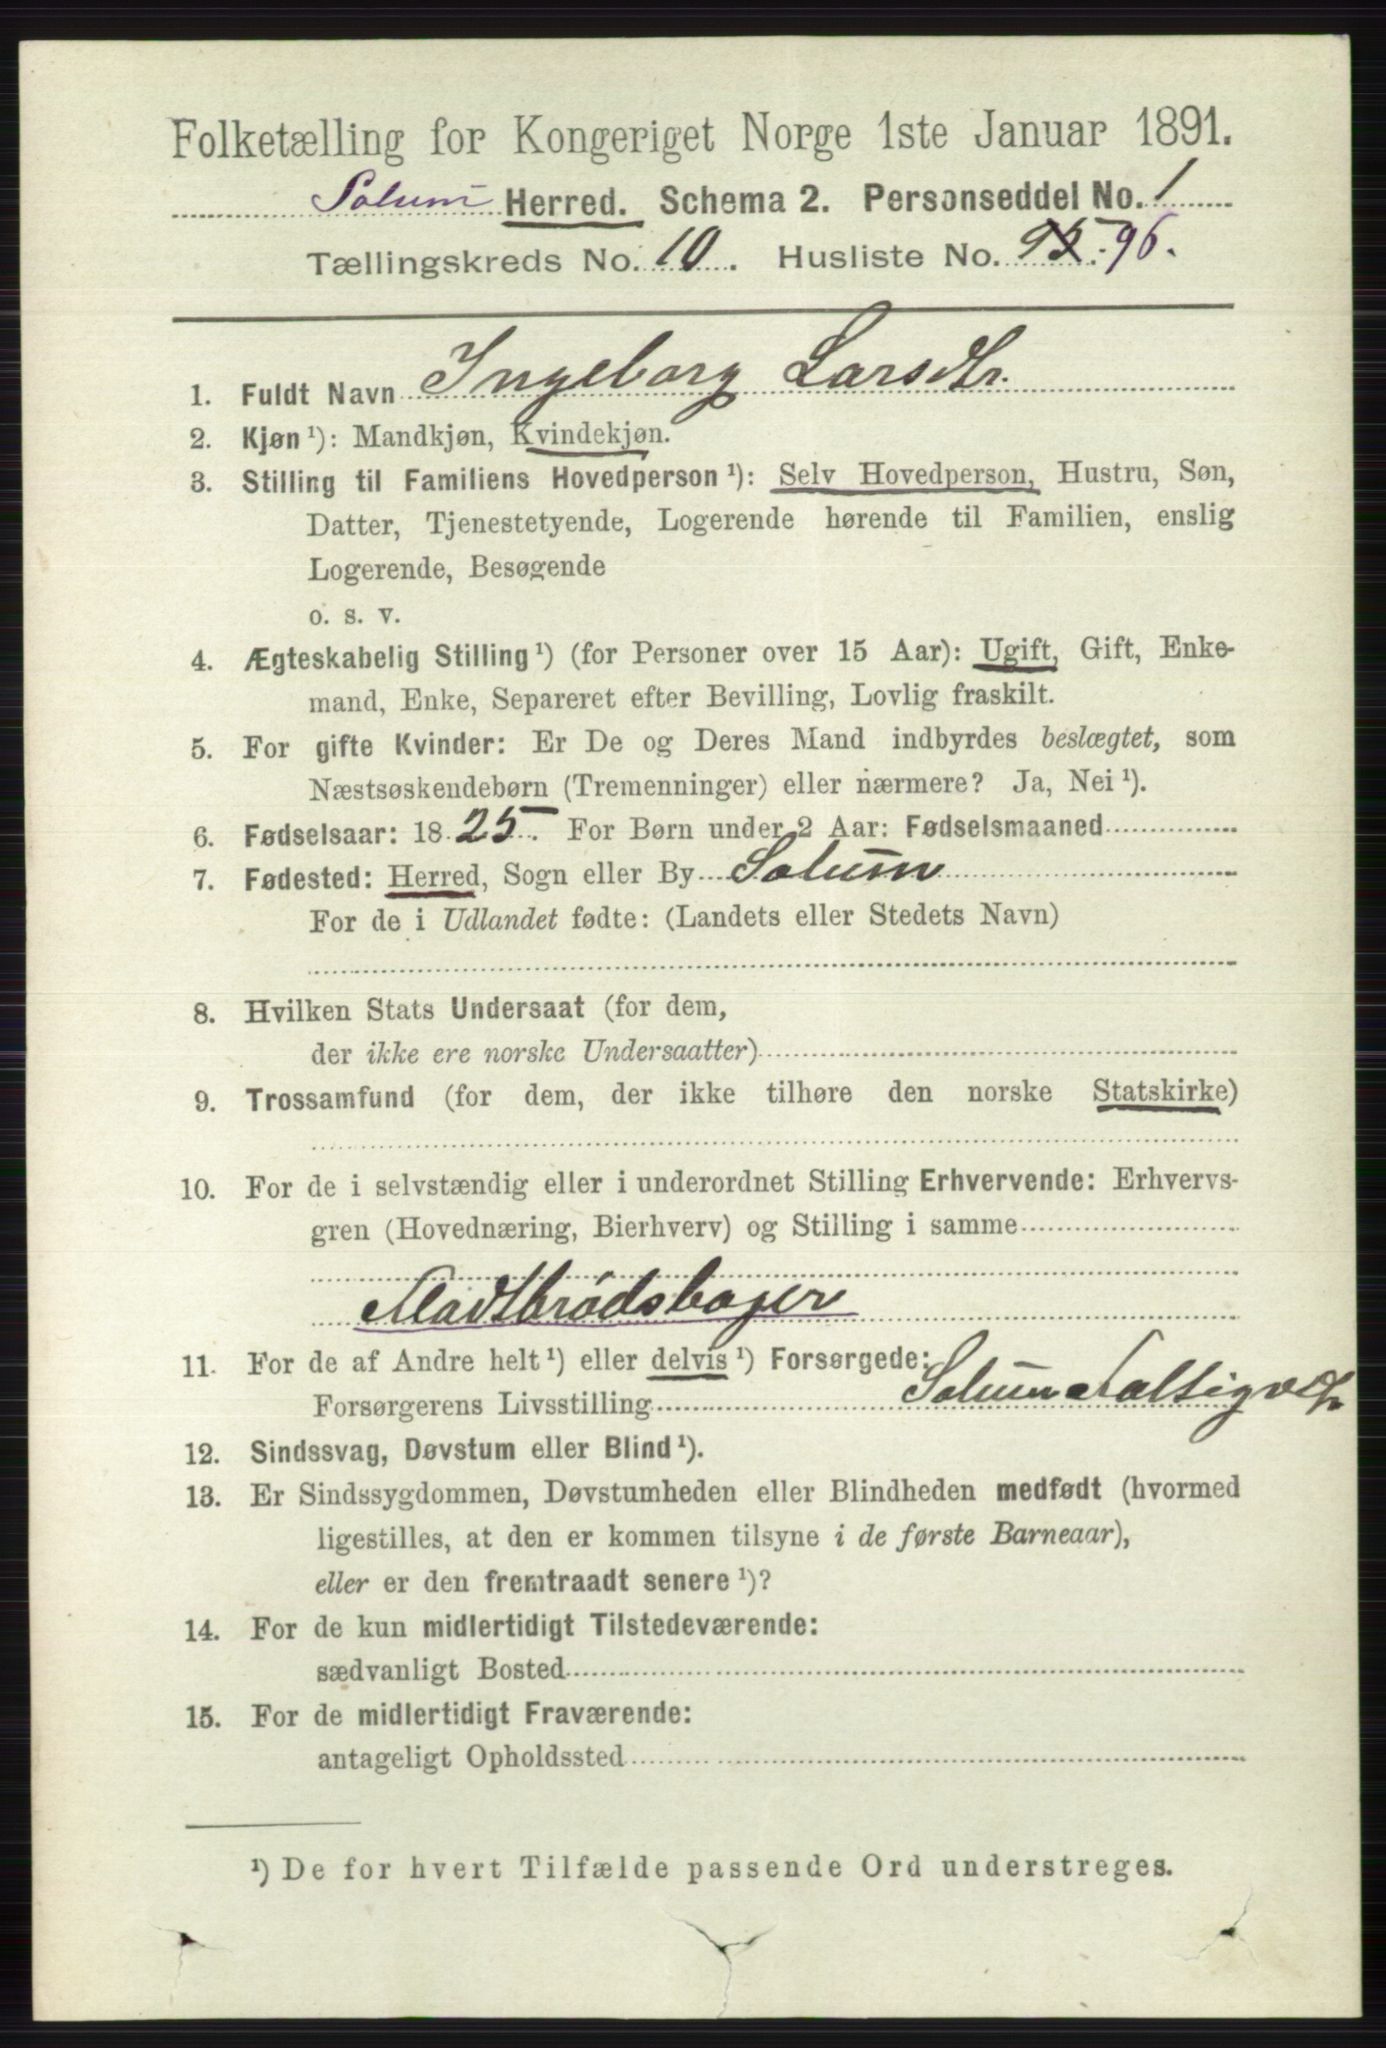 Folketælling for Kongeriget Norge 1ste Januar 1891.
Solum Herred. Schema 2. Personseddel No. 1
Tællingskreds No. 10. Husliste No. 95. 96.
1. Fuldt Navn Ingeborg Larsdtr.
2. Kjøn ¹): Mandkjøn, Kvindekjøn.
3. Stilling til Familiens Hovedperson ¹): Selv Hovedperson, Hustru, Søn,
Datter, Tjenestetyende, Logerende hørende til Familien, enslig
Logerende, Besøgende
o. s. v.
4. Ægteskabelig Stilling ¹) (for Personer over 15 Aar): Ugift, Gift, Enke-
mand, Enke, Separeret efter Bevilling, Lovlig fraskilt.
5. For gifte Kvinder: Er De og Deres Mand indbyrdes beslægtet, som
Næstsøskendebørn (Tremenninger) eller nærmere? Ja, Nei ¹).
6. Fødselsaar: 1825. For Børn under 2 Aar: Fødselsmaaned
7. Fødested: Herred, Sogn eller By Solum
For de i Udlandet fødte: (Landets eller Stedets Navn)
8. Hvilken Stats Undersaat (for dem,
der ikke ere norske Undersaatter)
9. Trossamfund (for dem, der ikke tilhøre den norske Statskirke)
10. For de i selvstændig eller i underordnet Stilling Erhvervende: Erhvervs-
gren (Hovednæring, Bierhverv) og Stilling i samme
Madbrødsbager
11. For de af Andre helt ¹) eller delvis ¹) Forsørgede:
Forsørgerens Livsstilling Solum Fattigv.
12. Sindssvag, Døvstum eller Blind ¹).
13. Er Sindssygdommen, Døvstumheden eller Blindheden medfødt (hvormed
ligestilles, at den er kommen tilsyne i de første Barneaar),
eller er den fremtraadt senere ¹)?
14. For de kun midlertidigt Tilstedeværende:
sædvanligt Bosted
15. For de midlertidigt Fraværende:
antageligt Opholdssted
¹) De for hvert Tilfælde passende Ord understreges.